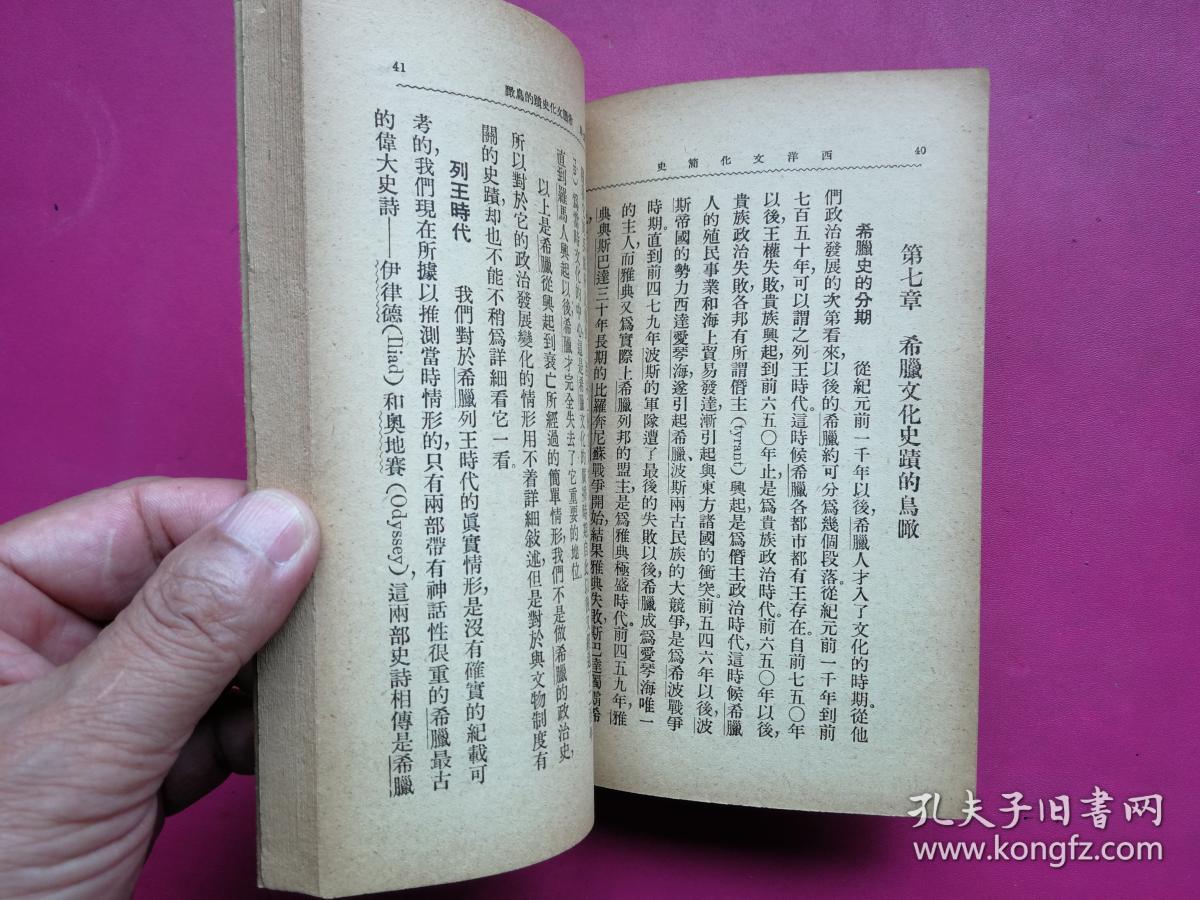 40
西洋文化簡史
第七章　希臘文化史蹟的鳥瞰
希臘史的分期　從紀元前一千年以後，希臘人才入了文化的時期。從他
們政治發展的次第看來，以後的希臘約可分爲幾個段落。從紀元前一千年到前
七百五十年，可以謂之列王時代。這時候希臘各都市都有王存在。自前七五〇年
以後，王權失敗，貴族興起，到前六五〇年止，是爲貴族政治時代。前六五〇年以後，
貴族政治失敗，各邦有所謂僭主(tyrant)興起，是爲僭主政治時代。這時候希臘
人的殖民事業和海上貿易發達，漸引起與東方諸國的衝突。前五四六年以後，波
斯帝國的勢力西達愛琴海，遂引起希臘、波斯兩古民族的大競爭，是爲希波戰爭
時期。直到前四七九年，波斯的軍隊遭了最後的失敗以後，希臘成爲愛琴海唯一
的主人，而雅典又爲實際上希臘列邦的盟主，是爲雅典極盛時代。前四五九年，雅
典與斯巴達三十年長期的比羅奔尼蘇戰爭開始，結果雅典失敗，斯巴達獨霸希
41
希臘文化史蹟的鳥瞰
爲當時文化的中心，這是希臘文化的
直到羅馬人興起以後，希臘才完全失去了它重要的地位。
以上是希臘從興起到衰亡所經過的簡單情形，我們不是做希臘的政治史，
所以對於它的政治發展變化的情形用不着詳細敍述，但是對於與文物制度有
關的史蹟，却也不能不稍爲詳細看它一看。
列王時代　我們對於希臘列王時代的眞實情形，是沒有確實的紀載可
考的，我們現在所據以推測當時情形的，只有兩部帶有神話性很重的希臘最古
的偉大史詩——伊律德(Iliad)和奧地賽(Odyssey)，這兩部史詩相傳是希臘
孔夫子旧书网
www.kongfz.com